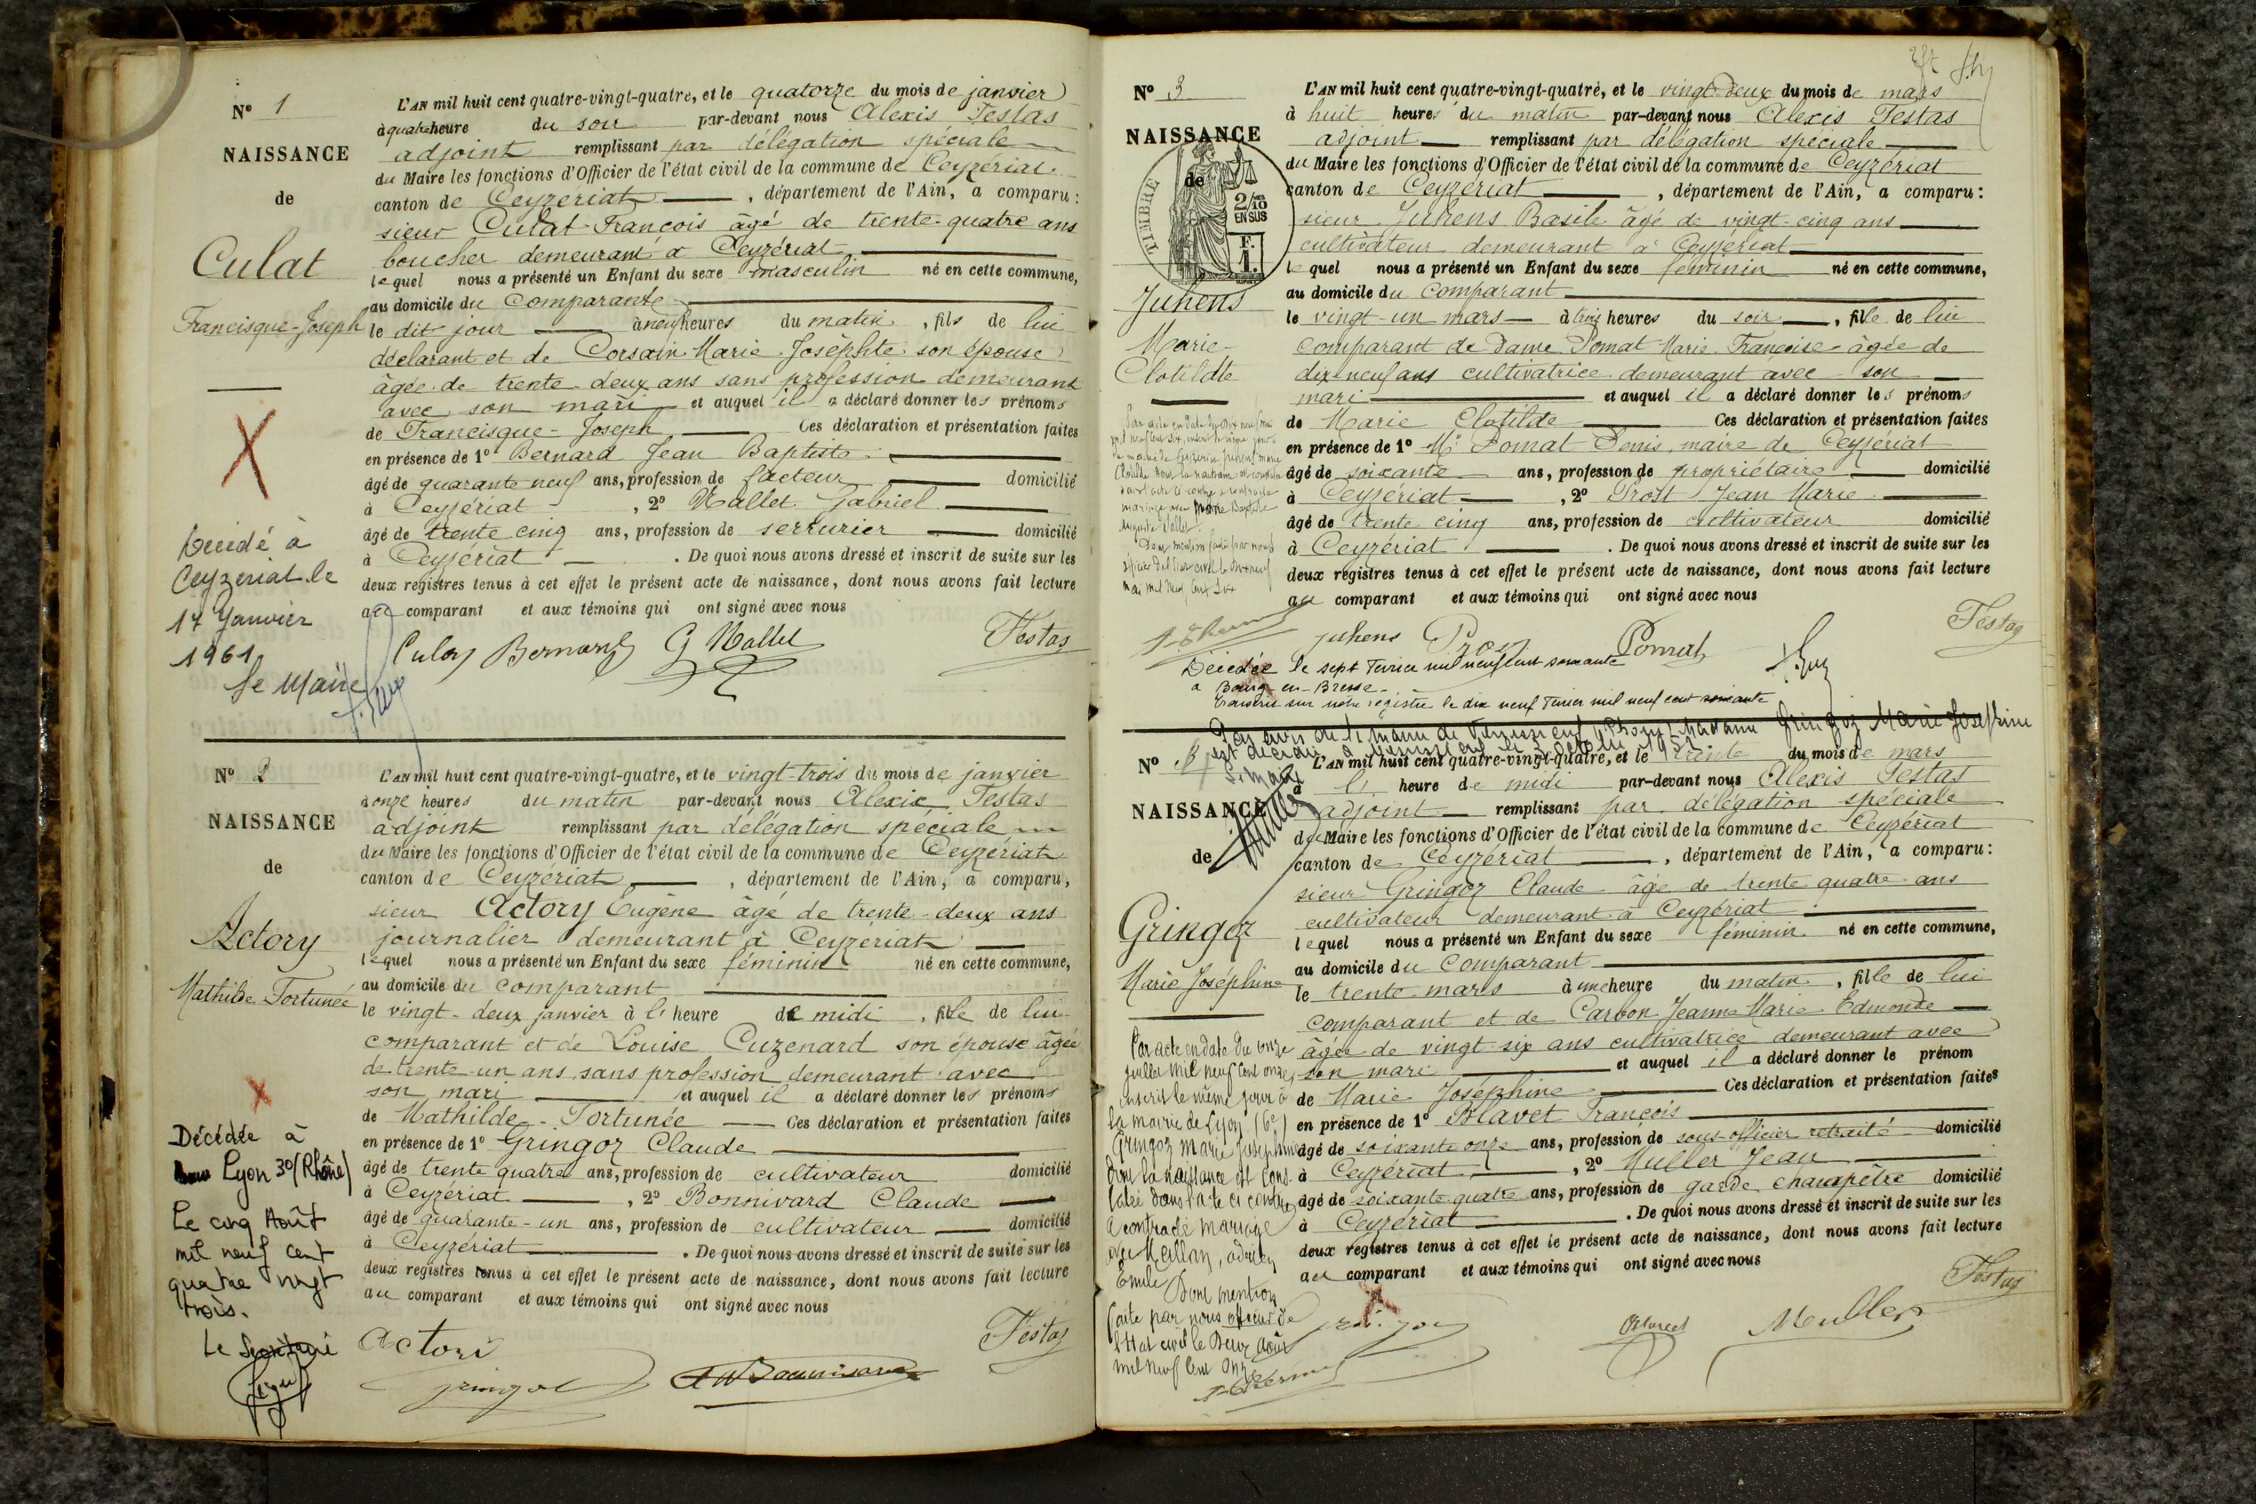 N° 1
NAISSANCE
de
Culat
Francisque-Joseph
Décédé à
Ceyzeriat le
17 Janvier
1961
Le Maire
L'AN mil huit cent quatre-vingt-quatre, et le quatorze du mois de janvier
à quatre heure du soir par-devant nous Alexis Festas
adjoint remplissant par délégation spéciale
du Maire les fonctions d'Officier de l'état civil de la commune de Ceyzériat
canton de Ceyzériat, département de l'Ain, a comparu:
sieur Culat François âgé de trente-quatre ans
boucher demeurant à Ceyzériat
lequel nous a présenté un Enfant du sexe masculin né en cette commune,
au domicile du Comparante
le dit jour à neuf heures du matin, fils de lui
déclarant et de Corsain Marie Joséphte son épouse
âgée de trente-deux ans sans profession demeurant
avec son mari et auquel il a déclaré donner les prénoms
de Francisque-Joseph Ces déclaration et présentation faites
en présence de 1° Bernard Jean Baptiste
âgé de quarante neuf ans, profession de facteur domicilié
à Ceyzériat, 2° Mallet Gabriel
âgé de trente cinq ans, profession de serrurier domicilié
à Ceyzériat. De quoi nous avons dressé et inscrit de suite sur les
deux registres tenus à cet effet le présent acte de naissance, dont nous avons fait lecture
au comparant et aux témoins qui ont signé avec nous
Bernard G Mallet Festas
N° 2
NAISSANCE
de
Actory
Mathilde Fortunée
Décédée à
Lyon 3e (Rhône)
Le cinq Août
mil neuf cent
quatre vingt
trois.
Le Secrétaire
L'AN mil huit cent quatre-vingt-quatre, et le vingt-trois du mois de janvier
à onze heures du matin par-devant nous Alexis Festas
adjoint remplissant par délégation spéciale
du Maire les fonctions d'Officier de l'état civil de la commune de Ceyzériat
canton de Ceyzériat, département de l'Ain, a comparu,
sieur Actory Eugène âgé de trente-deux ans
journalier demeurant à Ceyzériat
lequel nous a présenté un Enfant du sexe féminin né en cette commune,
au domicile du comparant
le vingt-deux janvier à l' heure de midi, fille de lui
comparant et de Louise Cuzenard son épouse âgée
de trente-un ans sans profession demeurant avec
son mari et auquel il a déclaré donner les prénoms
de Mathilde-Fortunée Ces déclaration et présentation faites
en présence de 1° Gringoz Claude
âgé de trente quatre ans, profession de cultivateur domicilié
à Ceyzériat, 2° Bonnivard Claude
âgé de quarante-un ans, profession de cultivateur domicilié
à Ceyzériat. De quoi nous avons dressé et inscrit de suite sur les
deux registres tenus à cet effet le présent acte de naissance, dont nous avons fait lecture
au comparant et aux témoins qui ont signé avec nous
Actori Festas
N° 3
NAISSANCE
de
TIMBRE
2/10
EN SUS
F.
1.
Juhens
Marie-
Clotildte
L'AN mil huit cent quatre-vingt-quatre, et le vingt-deux du mois de mars
à huit heures du matin par-devant nous Alexis Festas
adjoint remplissant par délégation spéciale
du Maire les fonctions d'Officier de l'état civil de la commune de Ceyzériat
canton de Ceyzériat, département de l'Ain, a comparu:
sieur Juhens Basile âgé de vingt-cinq ans
cultivateur demeurant à Ceyzériat
lequel nous a présenté un Enfant du sexe féminin né en cette commune,
au domicile du comparant
le vingt-un mars à trois heures du soir, fille de lui
comparant de Dame Pomat Marie Françoise âgée de
dix-neuf ans cultivatrice demeurant avec son
mari et auquel il a déclaré donner les prénoms
de Marie Clotilde Ces déclaration et présentation faites
en présence de 1° Mr Pomat Denis, maire de Ceyzériat
âgé de soixante ans, profession de propriétaire domicilié
à Ceyzériat, 2° Prost Jean Marie
âgé de trente cinq ans, profession de cultivateur domicilié
à Ceyzériat. De quoi nous avons dressé et inscrit de suite sur les
deux registres tenus à cet effet le présent acte de naissance, dont nous avons fait lecture
au comparant et aux témoins qui ont signé avec nous
Juhens Pomat Festas
Décédée le sept Février mil neuf cent soixante
à Bourg-en-Bresse
transcrit sur notre registre le dix neuf Février mil neuf cent soixante
Madame Gringoz Marie Joséphine
N°
NAISSANCE
de
Gringoz
Marie Joséphine
Par acte en date du onze
juillet mil neuf cent onze,
inscrit le même jour à
la mairie de Lyon (6e)
Gringoz Marie Joséphine
dont la naissance est cons-
tatée dans l'acte ci contre
a contracté mariage
avec Meillan, Adrien
Emile Dont mention
faite par nous officier de
l'état civil le Deux août
mil neuf cent onze
L'AN mil huit cent quatre-vingt-quatre, et le trente du mois de mars
à l' heure de midi par-devant nous Alexis Festas
adjoint remplissant par délégation spéciale
du Maire les fonctions d'Officier de l'état civil de la commune de Ceyzériat
canton de Ceyzériat, département de l'Ain, a comparu:
sieur Gringoz Claude âgé de trente quatre ans
cultivateur demeurant à Ceyzériat
lequel nous a présenté un Enfant du sexe féminin né en cette commune,
au domicile du comparant
le trente mars à une heure du matin, fille de lui
comparant et de Carbon Jeanne Marie Edmonde
âgée de vingt six ans cultivatrice demeurant avec
son mari et auquel il a déclaré donner le prénom
de Marie Joséphine Ces déclaration et présentation faites
en présence de 1° Blavet François
âgé de soixante onze ans, profession de sous-officier retraité domicilié
à Ceyzériat, 2° Muller Jean
âgé de soixante quatre ans, profession de garde champêtre domicilié
à Ceyzériat. De quoi nous avons dressé et inscrit de suite sur les
deux registres tenus à cet effet le présent acte de naissance, dont nous avons fait lecture
au comparant et aux témoins qui ont signé avec nous
Muller Festas